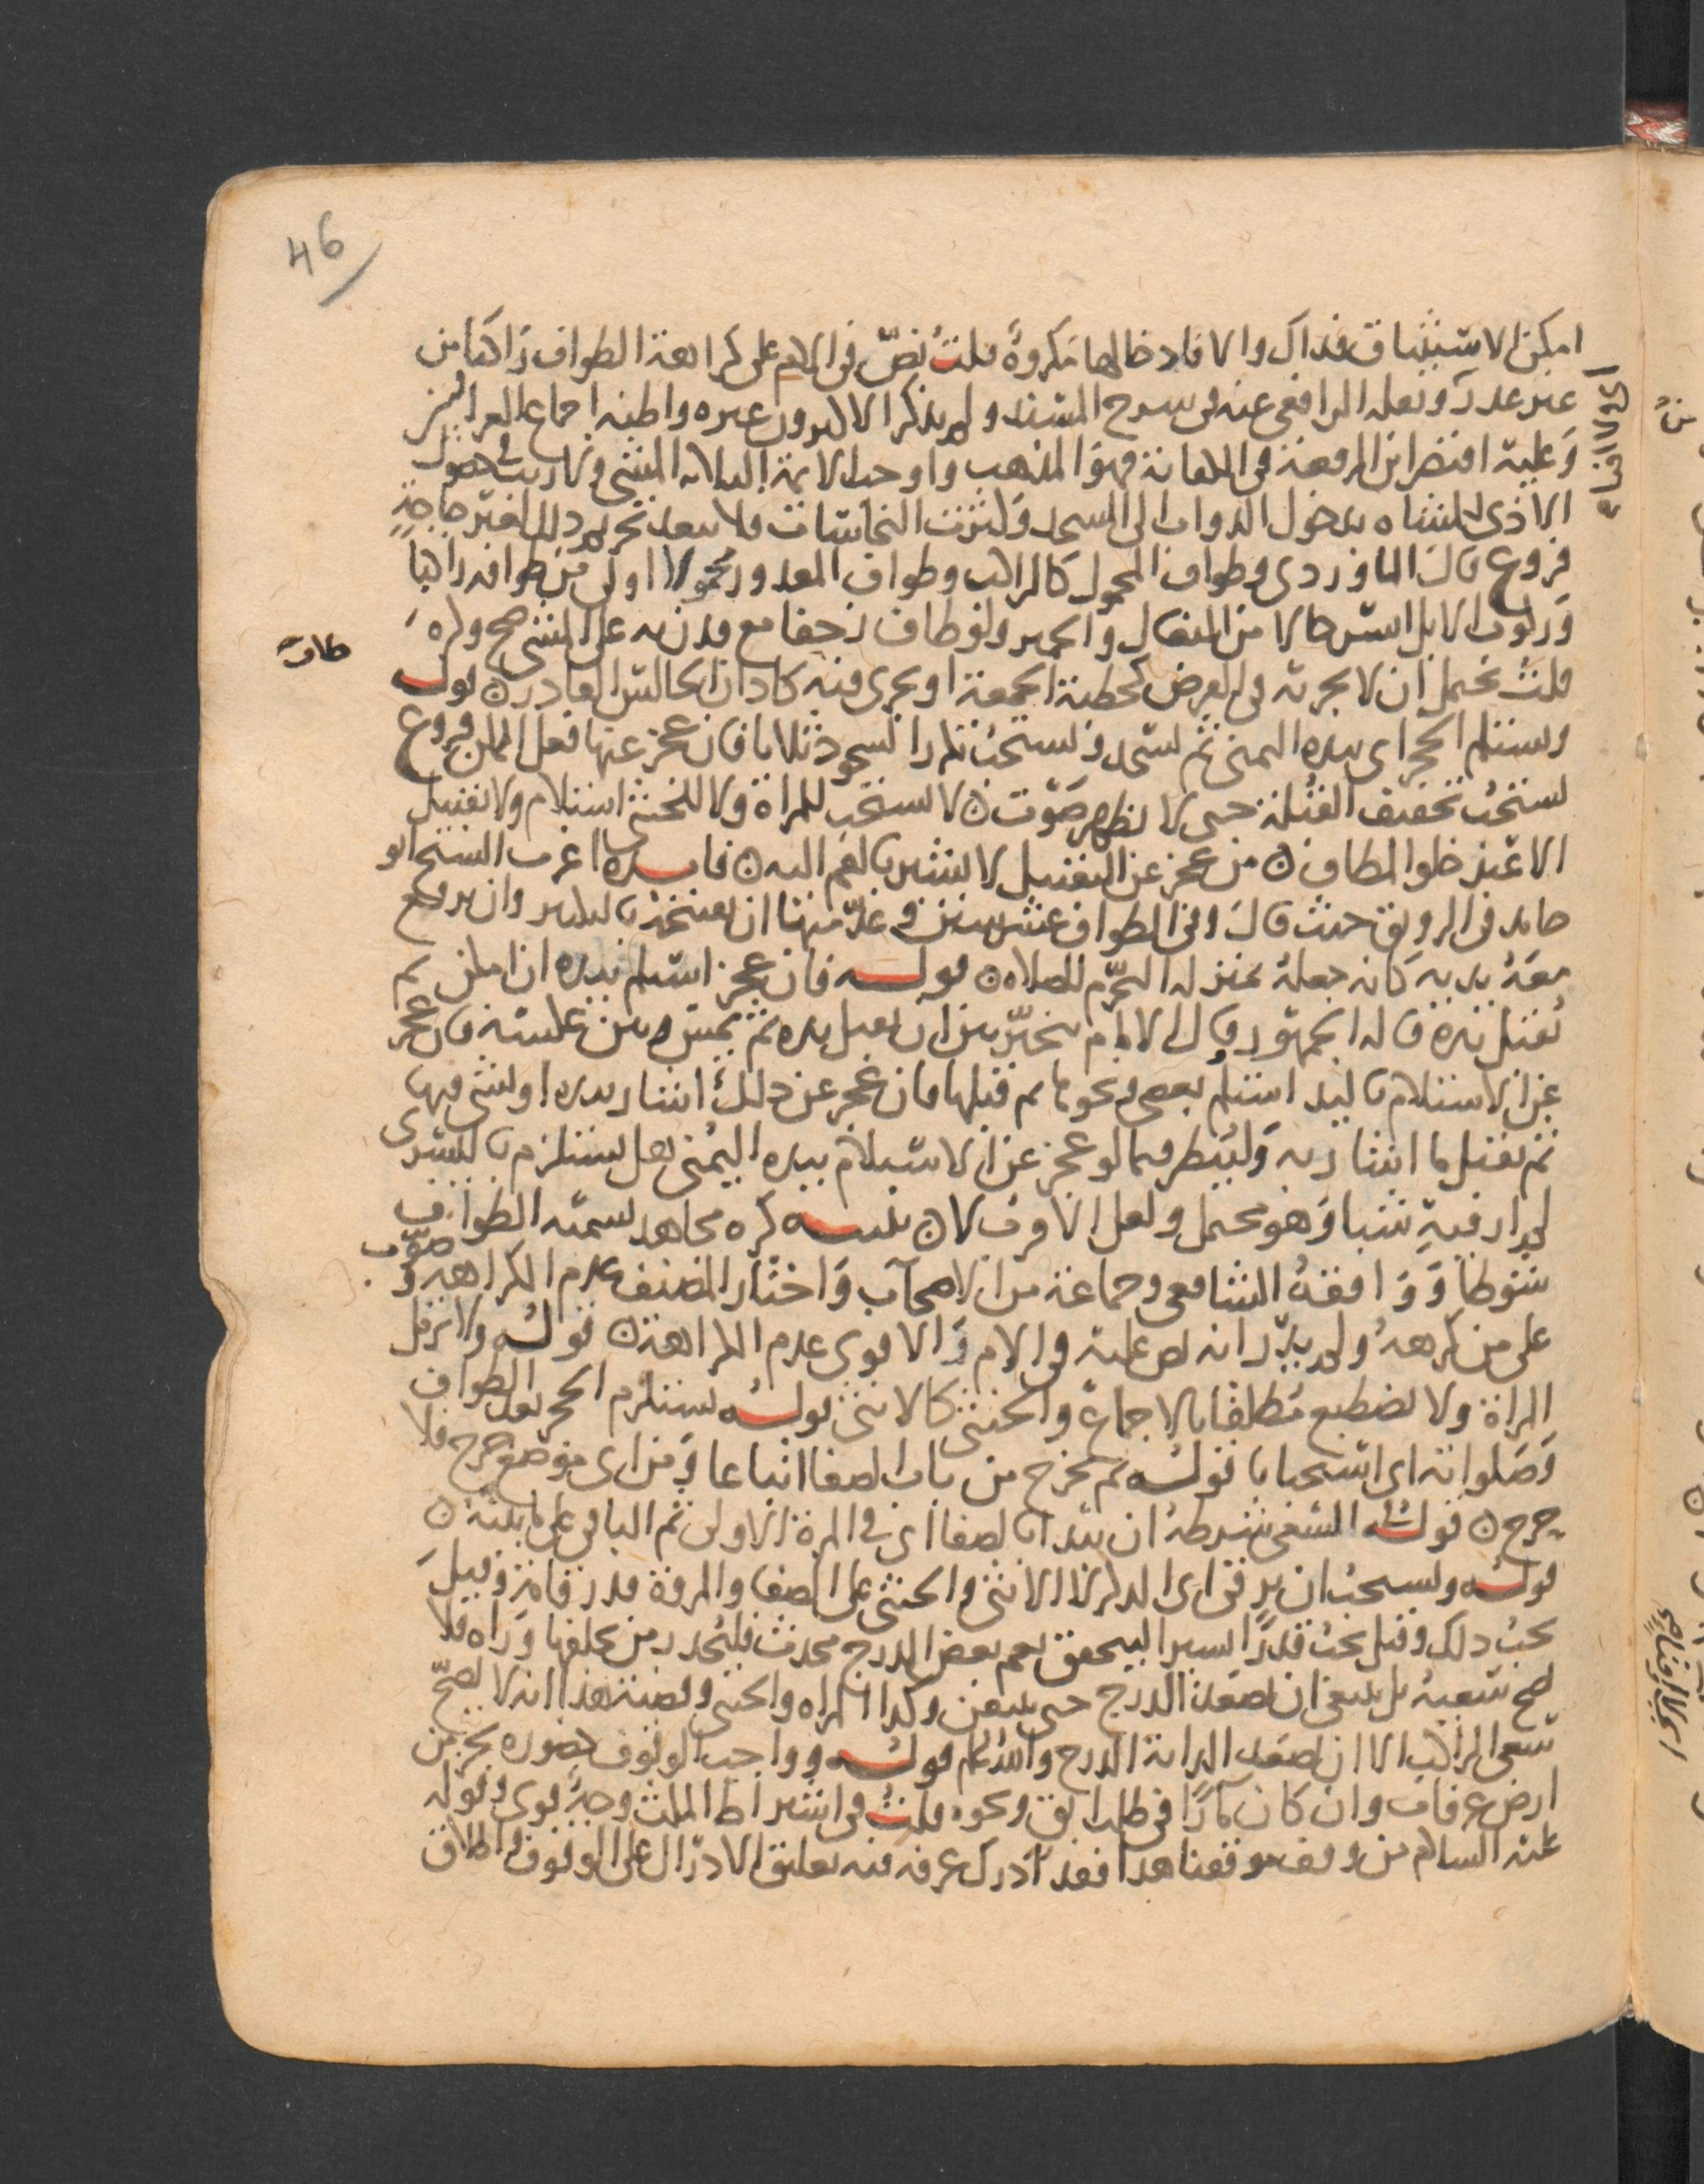 46
امكن الاستيثاق فذاك والا فادخالها مكروه قلت نص في الام على كراهة الطواف راكبا من
غير عذر ونقله الرافعي عنه في شرح المسند ولم يذكر الاكثرون غيره واظنه اجماع العراقيين
وعليه اقتصر ابن الرفعة في الكفاية فهو المذهب واوجب الائمة الثلاثة المشي ولا ريب في حصول
الاذى للمشاه بدخول الدواب الى المسجد وكثرت النجاسات فلا يبعد تحريم ذلك لغير حاجة
فروع قال الماوردي وطواف المحمول كالراكب وطواف المعذور محمولا اولى من طوافه راكبا
وركوب الابل ايسر حالا من البغال والحمير ولو طاف زحفا مع قدرته على المشي صح وكره
قلت يحتمل ان لا يجزيه في الفرض كخطبة الجمعة او يجري فيه كاذان الجالس القادر ن قوله
ويستلم الحجر اي بيده اليمنى ثم يسجد ويستحب تكرار السجود ثلاثا فان عجز عنها فعل الممكن فروع
يستحب تخفيف القبلة حتى لا يظهر صوت ن لا يستحب للمراة ولا للخنثى استلام ولا تقبيل
الا عند خلو المطاف ن من عجز عن التقبيل لا يشير بالفم اليه ن فايده اغرب الشيخ ابو
حامد في الرونق حيث قال وفي الطواف عشر سنن وعد منها ان يفتتحه بالتكبير وان يرفع
معه يديه كانه جعله بمنزلة التحرم للصلاه ن قوله فان عجز استلم بيده ان امكن ثم
يقبل يده قاله الجمهور وقال الامام يتخير بين ان يقبل يده ثم يمس وبين عكسه فان عجز
عن الاستلام باليد استلم بعصى ونحوها ثم قبلها فان عجز عن ذلك اشار بيده او بشي فيها
ثم يقبل ما اشار به ولينظر فيما لو عجز عن الاستلام بيده اليمنى هل يستلم باليسرى
لم ار فيه شيا وهو محتمل ولعل الاقرب لا ن تنبيه كره مجاهد تسميه الطواف
شوطا ووافقه الشافعي وجماعة من الاصحاب واختار المصنف عدم الكراهه وصوب
على من كرهه ولم يدر انه نص عليه في الام والاقوى عدم الكراهة ن قوله ولا ترمل
المراة ولا تضطبع مطلقا بالاجماع والخنثى كالانثى قوله يستلم الحجر بعد الطواف
وصلواته اي استحبابا قوله ثم يخرج من باب الصفا اتباعا ومن اي موضع خرج فلا
حرج ن قوله السعي شرطه ان يبدا بالصفا اي في المرة الاولى ثم الباقي على ما يليه ن
قوله ويستحب ان يرقى اي الذكر لا الانثى والخنثى على الصفا والمروة قدر قامة وقيل
يجب ذلك وقيل يجب قدرا يسيرا ليتحقق نعم بعض الدرج محدث فليحذر من يخلفها وراه فلا
يصح سعيه بل ينبغي ان يصعد الدرج حتى يتيقن وكذا المراه والخنثى وقضيته هذا انه لا يصح
سعي الراكب الا ان يصعد الدابة الدرج والله اعلم قوله وواجب الوقوف حضوره بجزء من
ارض عرفات وان كان مارا في طلب ابق ونحوه قلت في اشتراط المكث وجه قوي وقوله
عليه السلام من وقف موقفنا هذا فقد ادرك عرفه فيه تعليق الادراك على الوقوف واطلاق